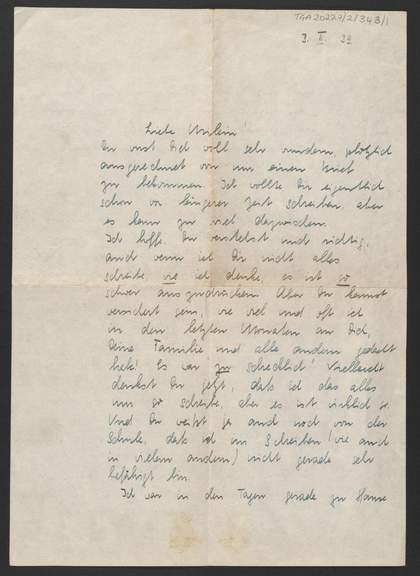 TGA 20229/2/343/1
3. II. 39
Liebe Urslein!
Du wirst Dich wohl sehr wundern, plötzlich
ausgerechnet von mir einen Brief
zu bekommen. Ich wollte Dir eigentlich
schon vor längerer Zeit schreiben, aber
es kam zu viel dazwischen.
Ich hoffe, Du verstehst mich richtig,
auch wenn ich Dir nicht alles
schreibe wie ich denke, es ist so
schwer auszudrücken. Aber Du kannst
versichert sein, wie viel und oft ich
in den letzten Monaten an Dich,
Deine Familie und alle andern gedacht
habe! Es war zu schrecklich! Vielleicht
denkst Du jetzt, dass ich das alles
nur so schreibe, aber es ist wirklich so.
Und Du weisst ja auch noch von der
Schule, dass ich im Schreiben (wie auch
in vielem andern) nicht gerade sehr
befähigt bin.
Ich war in den Tagen gerade zu Hause